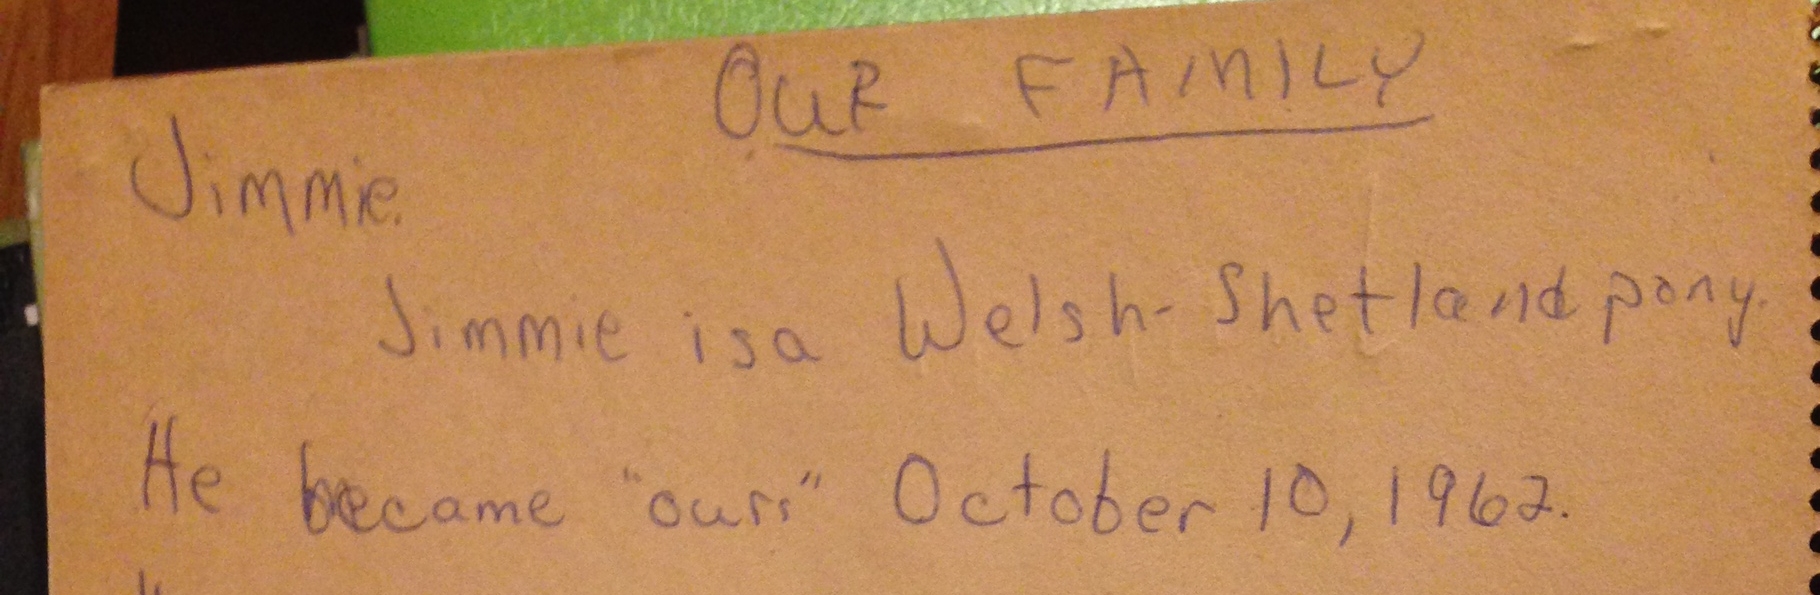 OUR FAMILY
Jimmie.
Jimmie is a Welsh-Shetland pony.
He became "ours" October 10, 1962.